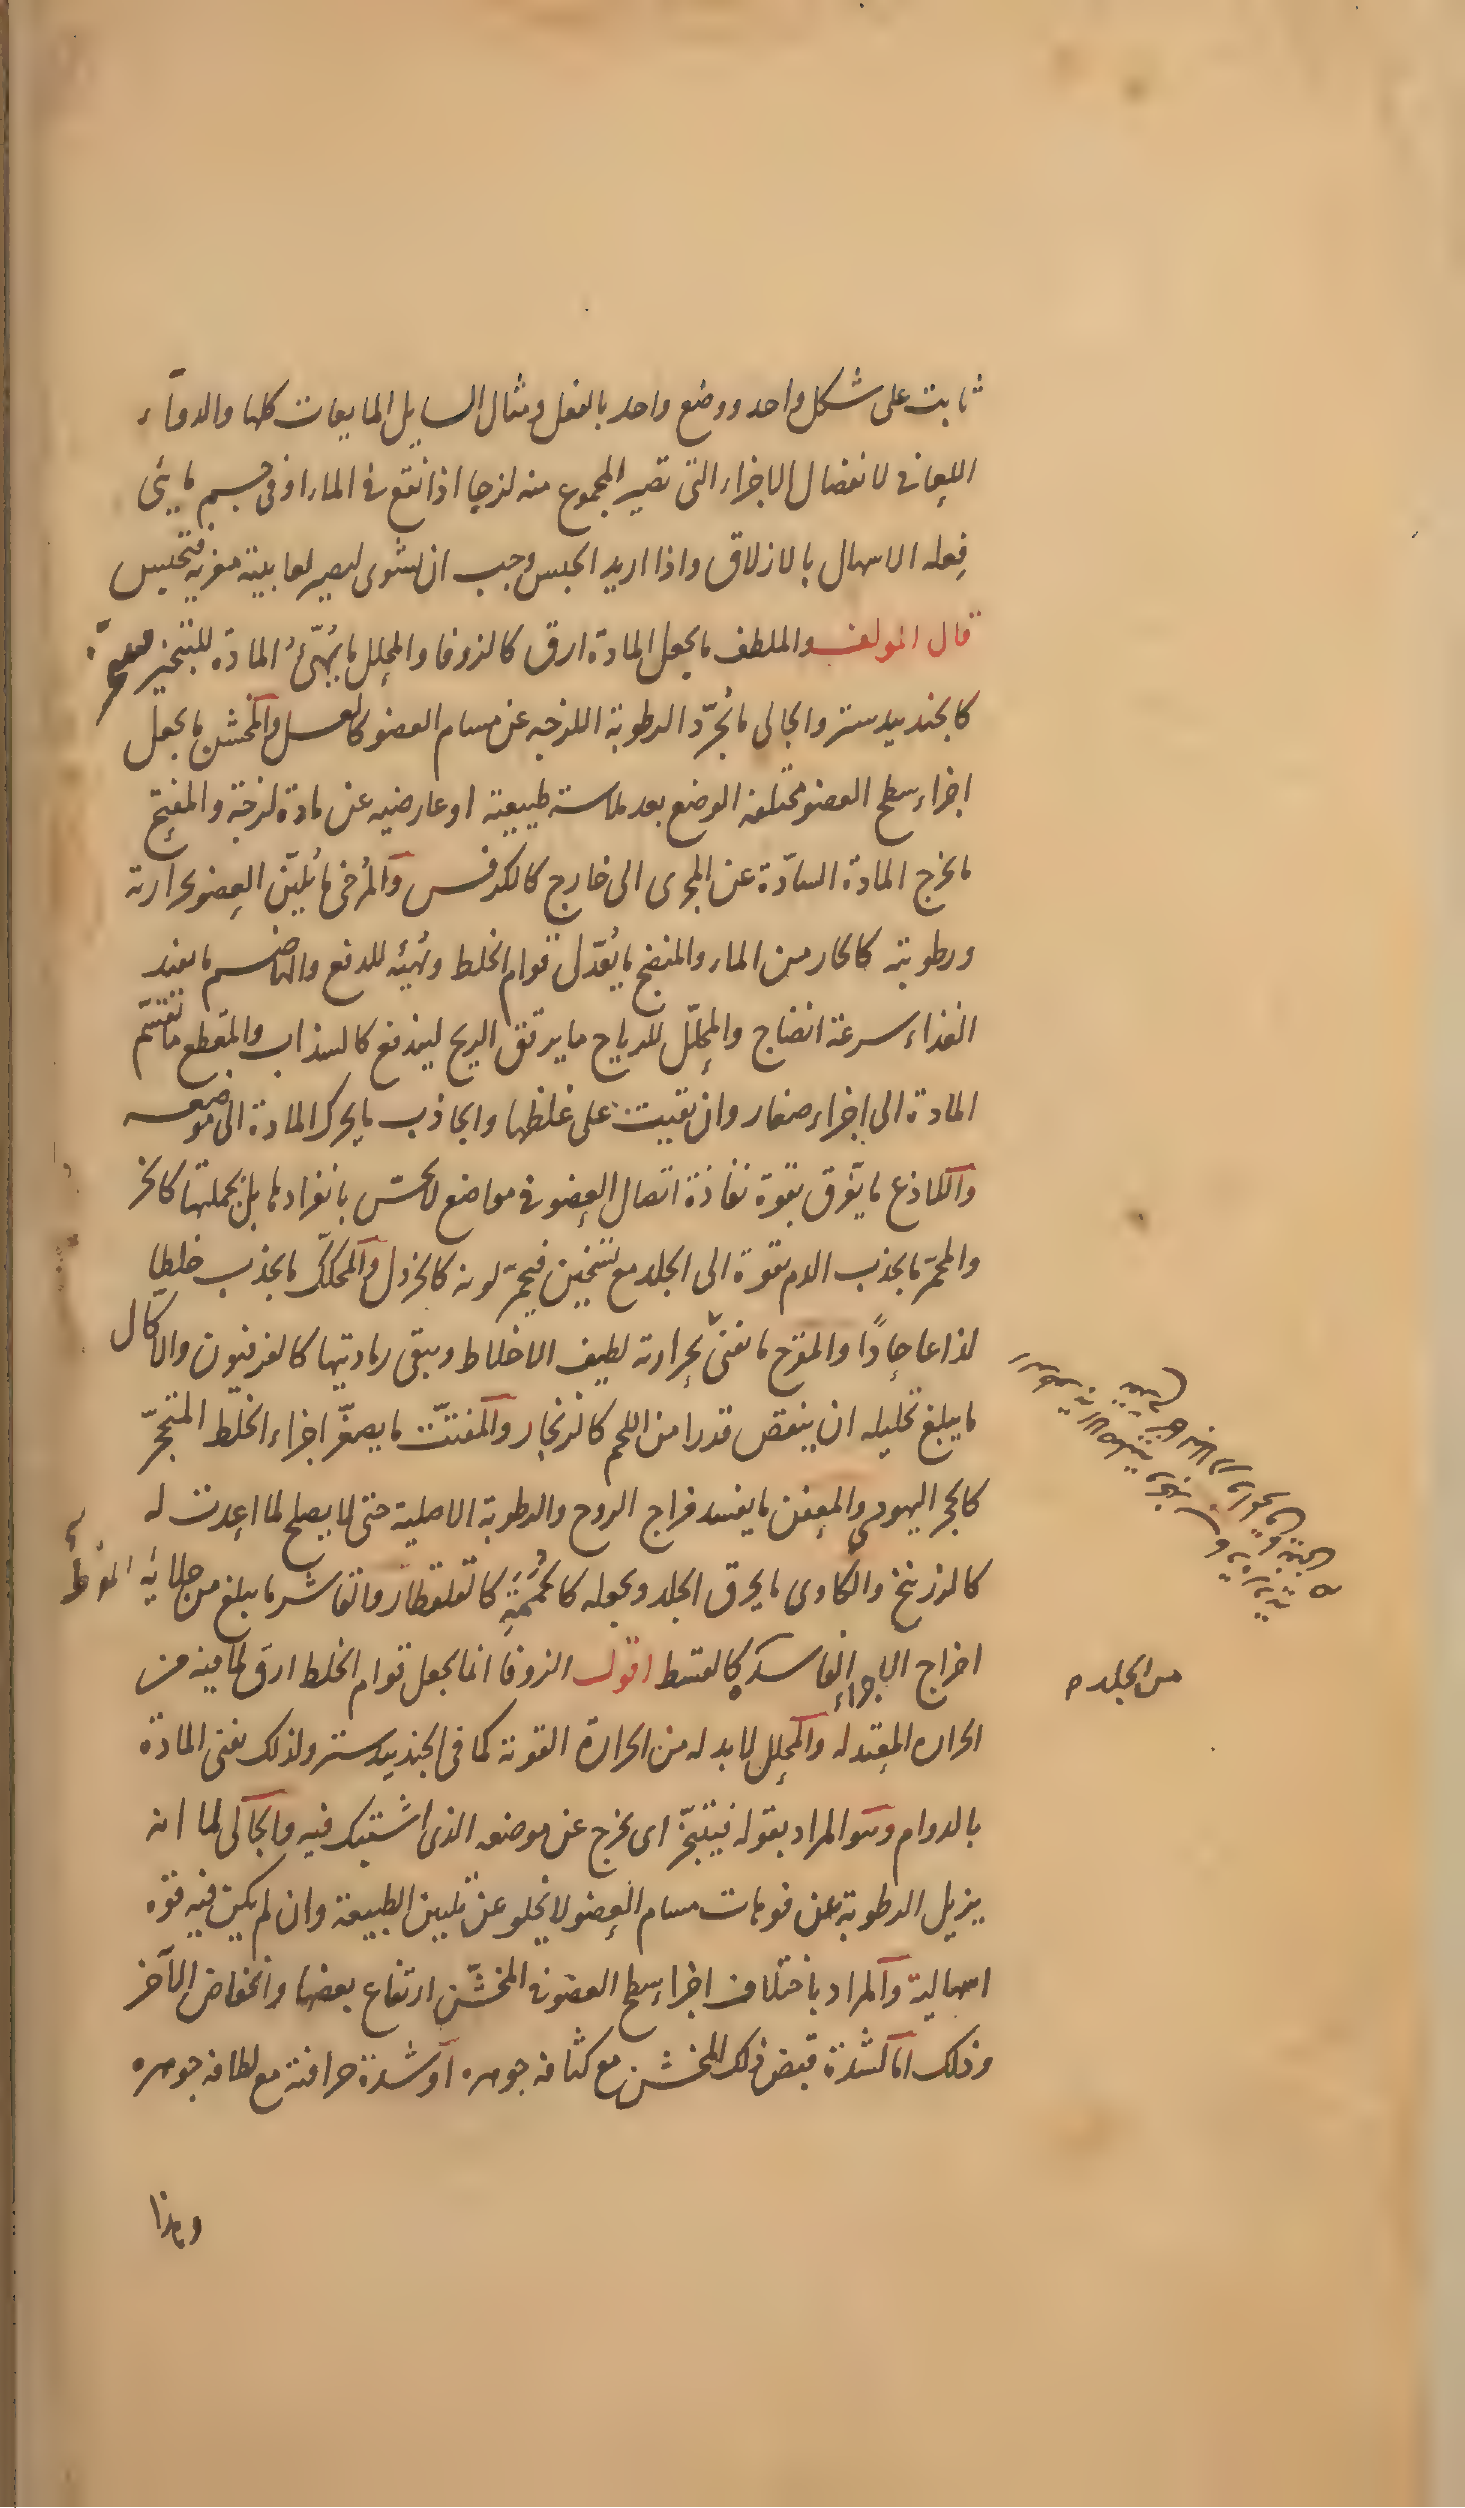 ثابت على شكل واحد ووضع واحد بالفعل ومثال السايل المايعات كلها والدوآء
اللعابى لانفصال الاجزاء التى تصير المجموع منه لزجا اذا نقع فى الماء او فى جسم مايئى
فعله الاسهال بالازلاق واذا اريد الحبس وجب ان يشوى ليصير لعابيته مغرية فتحبس
قال المولف والملطف ما يجعل المادة ارق كالزوفا والمحلل ما يُهيّئُ المادة للتبخير فيتبخّر
كالجندبيدستر والجالى ما يُجرّد الرطوبة اللزجه عن مسام العضو كالعسل والمخشن ما يجعل
اجزاء سطح العضو مختلفه الوضع بعد ملاسته طبيعية او عارضيه عن مادة لزجة والمفتح
ما يخرج المادة السادّة عن المجرى الى خارج كالكرفس والمُرخى ما يُليّن العضو بحرارته
ورطوبته كالحار من الماء والمنضج ما يُعدّل قوام الخلط ويُهيئه للدفع والهاضم ما يفيد
الغذاء سرعة انضاج والمحلّل للرياح ما يرقق الريح ليندفع كالسذاب والمقطع ما يقسّم
المادة الى اجزاء صغار وان بقيت على غلظها والجاذب ما يحرك المادة الى موضعه
واللاذع ما يفّرق بقوة نفاذة اتصال العضو فى مواضع لا تحسّ بانفرادها بل بجملتها كالخر
والمحمّر ما يجذب الدم بقوة الى الجلد مع تسخين فيحمّر لونه كالخردل والمحكّك ما يجذب خلطا
لذاعا حادًا والمقرح ما يفنى بحرارته لطيف الاخلاط ويبقى رماديتها كالفرفيون والاكال
ما يبلغ تحليله ان ينقص قدرا من اللحم كالزنجار والمفتتّ ما يصغّر اجزاء الخلط المتحجّر
كالحجر اليهودى والمعفن ما يفسد مزاج الروح والرطوبة الاصلية حتى لا يصلح لما اعدت له
كالزرنيخ والكاوى ما يحرق الجلد ويجعله كالحُمَمَةِ كالقلقطار والقاشر ما يبلغ من جلائه المفرط
اخراج الاجزاء الفاسدة كالقسط اقول الزوفا انما يجعل قوام الخلط ارق لما فيه من
من الجلد
الحراره المعتدله والمحلل لا بد له من الحرارة القوية كما فى الجندبيدستر ولذلك يفنى المادة
بالدوام وهو المراد بقوله فيتبخّر اى يخرج عن موضعه الذى اشتبك فيه والجالى لما انه
يزيل الرطوبة عن فوهات مسام العضو لا يخلو عن تليين الطبيعة وان لم يكن فيه قوة
اسهالية والمراد باختلاف اجزا سطح العضو فى المخشّن ارتفاع بعضها وانخفاض الآخر
وذلك اما لشدة قبض ذلك المخشن مع كثافه جوهره او شدة حرافته مع لطافه جوهره
وهذا